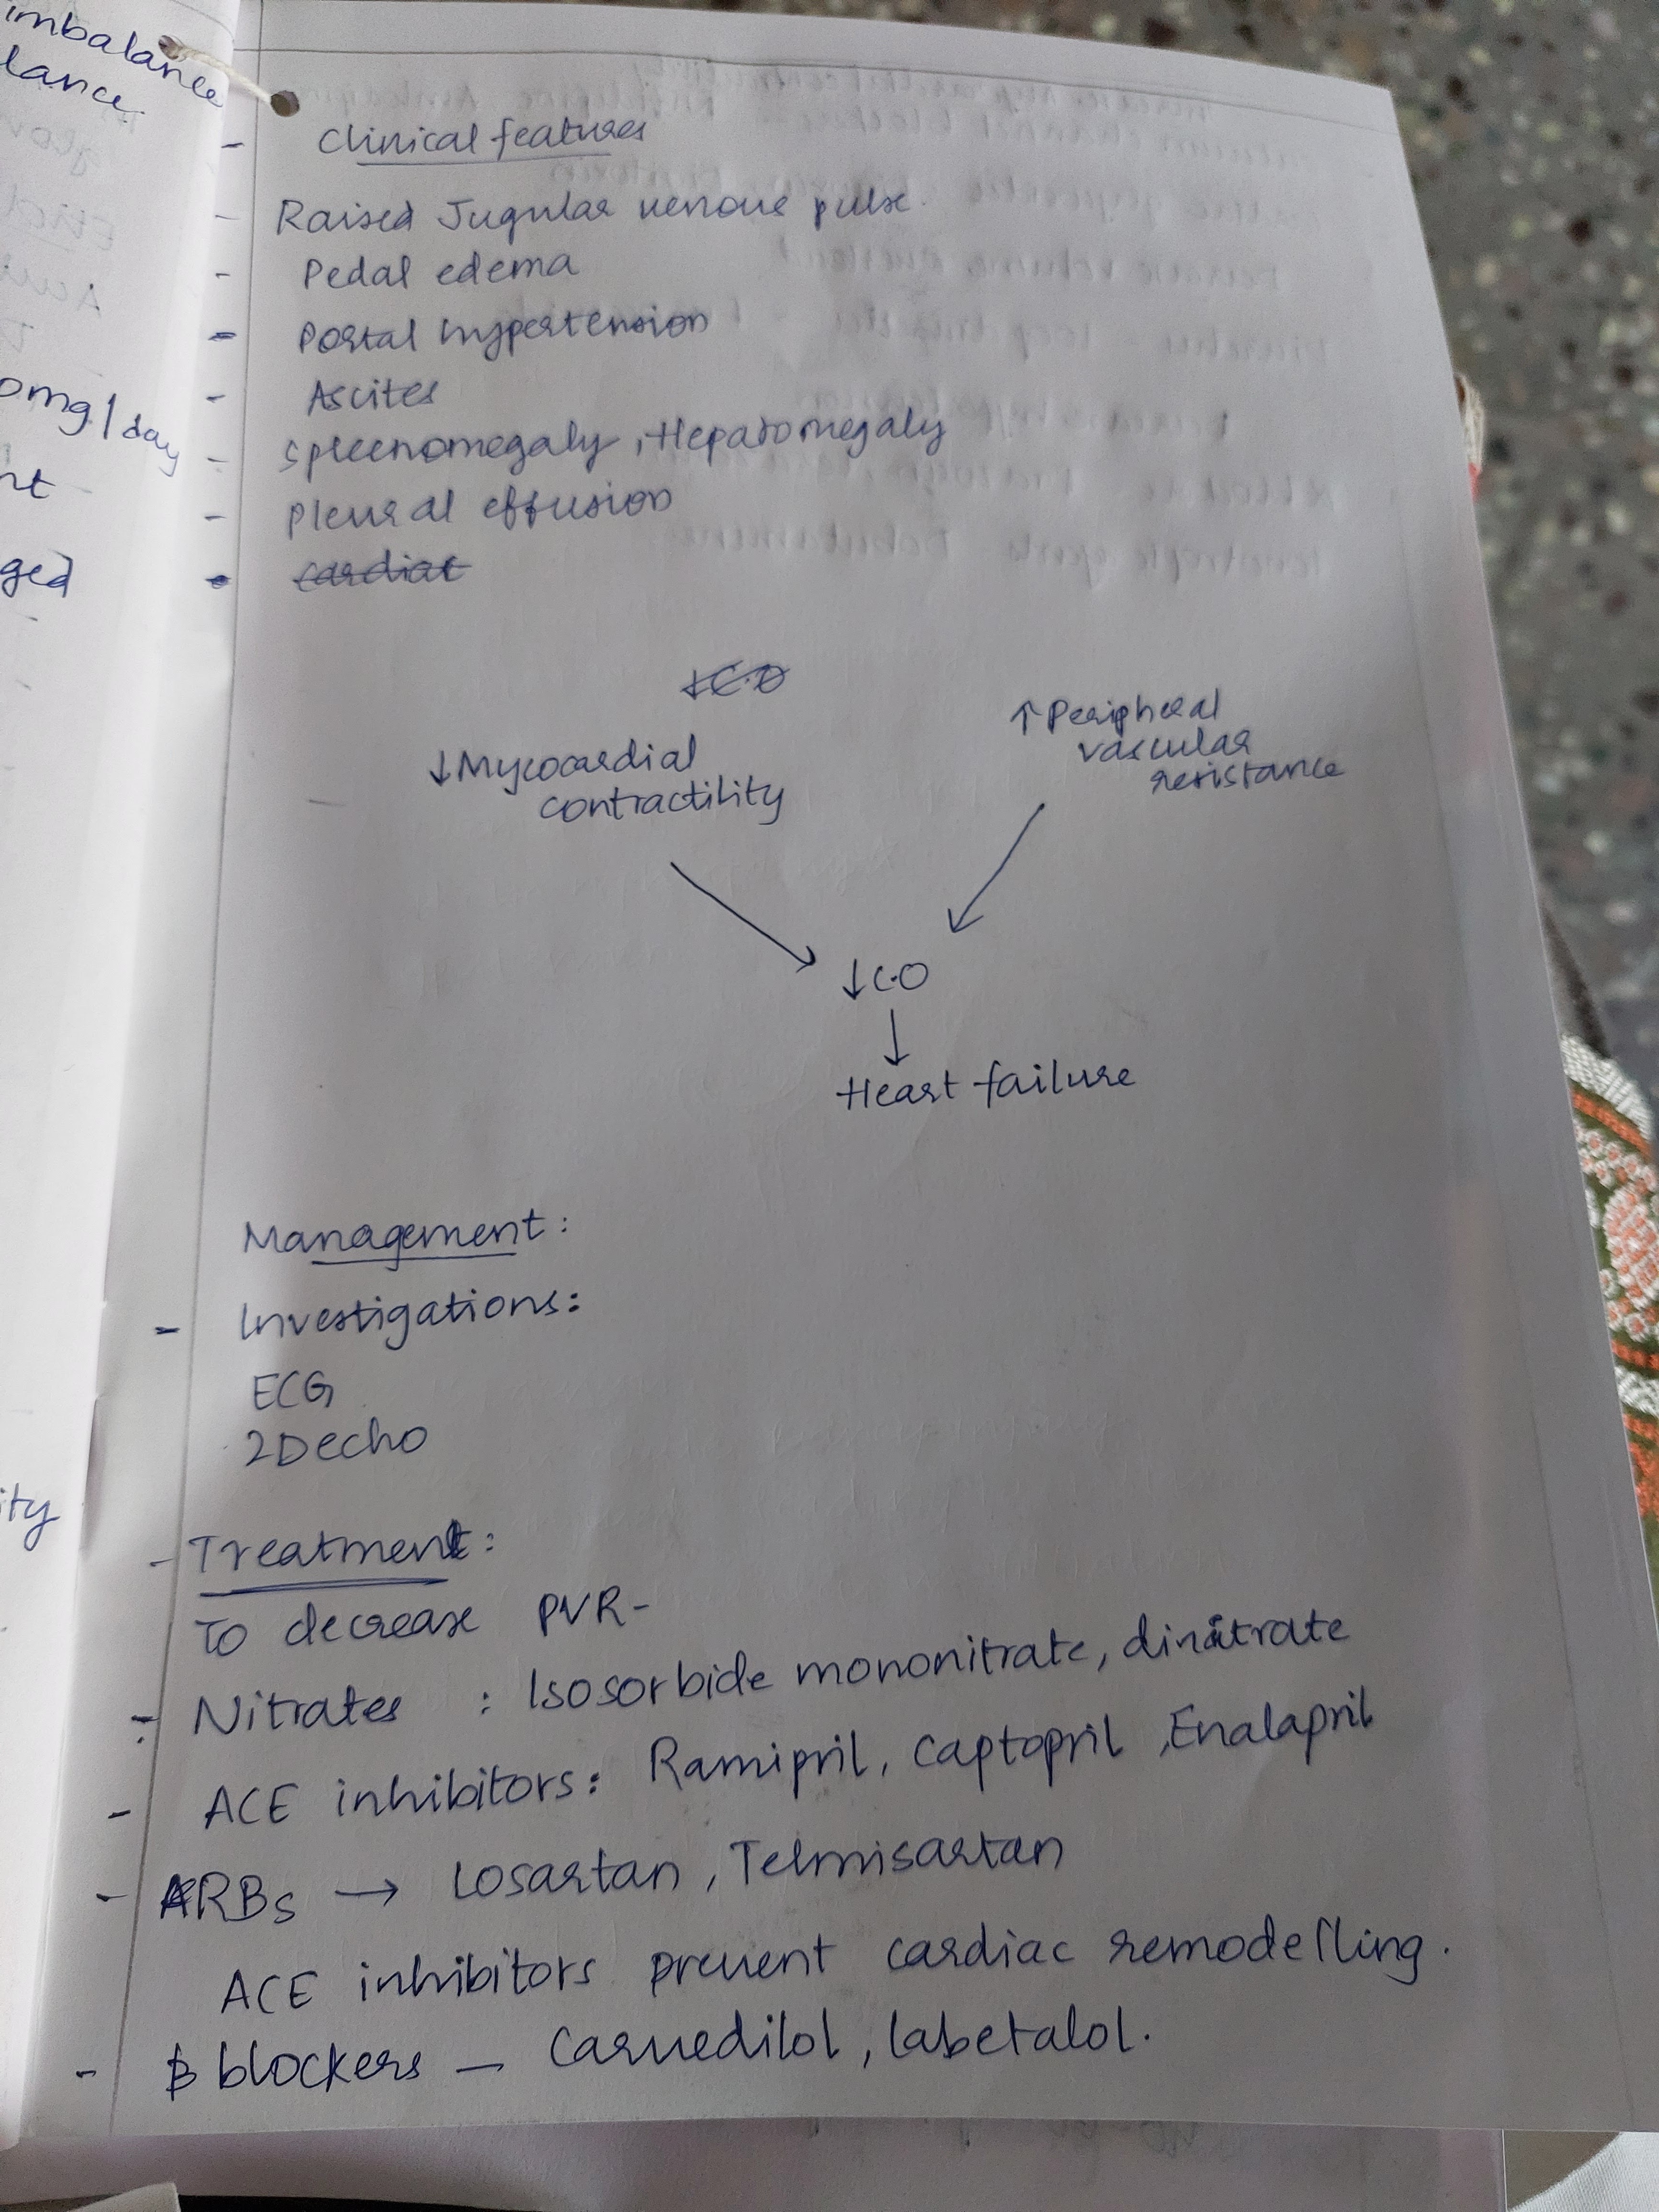 imbalance
lance
omg/day
nt
ged
ity
- Clinical features
- Raised Jugular venous pulse.
- Pedal edema
- Portal hypertension
- Ascites
- Spleenomegaly, Hepatomegaly
- Pleural effusion
- cardiac
↓C.O
↓Mycocardial
contractility
↑Peripheral
vascular
resistance
↓C.O
↓
Heart failure
Management:
- Investigations:
ECG
2Decho
- Treatment:
To decrease PVR-
- Nitrates : Isosorbide mononitrate, dinitrate
- ACE inhibitors: Ramipril, Captopril, Enalapril
- ARBs → Losartan, Telmisartan
ACE inhibitors prevent cardiac remodelling.
- β blockers - Carvedilol, labetalol.